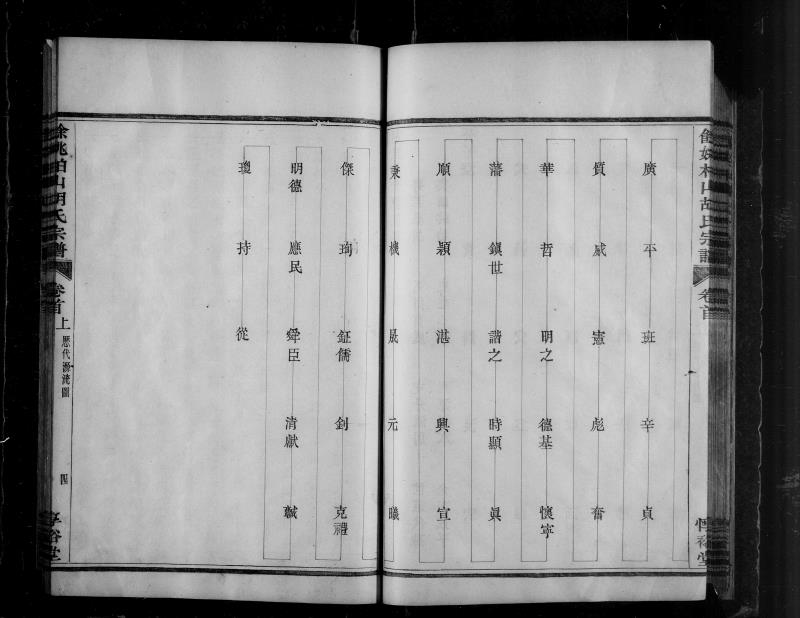 廣 平 班 辛 貞
質 威 憲 彪 奮
華 哲 明之 德基 懷寧
藩 鎮世 諧之 時顯 眞
順 穎 湛 興 宣
秉 機 晟 元 曦
傑 珣 鉦儒 釗 克禮
明德 應民 舜臣 清獻 諴
瓊 持 從
餘姚柏山胡氏宗譜 卷首上 歷代源流圖 四 惇裕堂